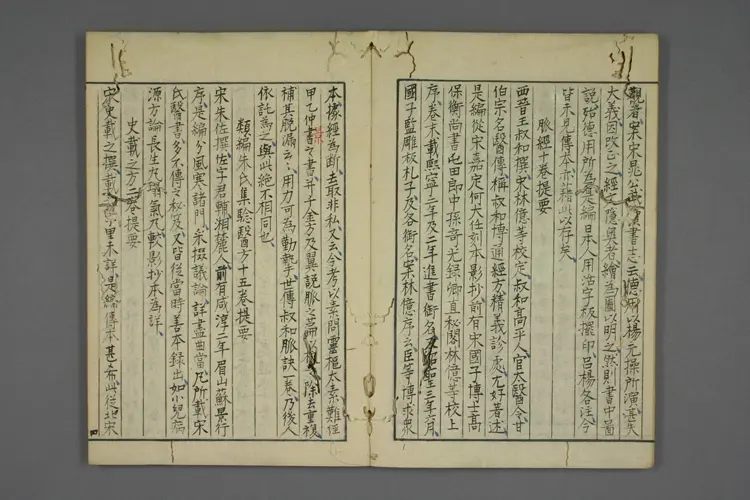 觀者案宋晁公武讀書志云德用以楊元操所演甚失
大義因改正之經文隱奧者繪為圖以明之然則書中圖
說殆德用所為是編日本人用活字板擺印呂楊各注今
皆未見傳本亦藉此以存矣
脈經十卷提要
西晉王叔和撰宋林億等校定叔和高平人官太醫令甘
伯宗名醫傳稱叔和博通經方精義診處尤好著述
是編從宋嘉定何大任刻本影抄前有宋國子博士高
保衡尚書屯田郎中孫奇光祿卿直秘閣林億等校上
序卷末載熙寧三年及二年進書銜名又紹聖三年六月
國子監雕板札子及各銜名案林億序云臣等博求衆
本據經為斷去取非私又云今考以素問靈樞太素難經
甲乙仲景之書并千金方及翼說脈之篇以校除去重複
補其脫漏云云用力可為勤摯世傳叔和脈訣一卷乃後人
依託為之與此絕不相同也
類編朱氏集驗醫方十五卷提要
宋朱佐撰佐字君輔湘麓人前有咸淳二年眉山蘇景行
序是編分風寒諸門采掇議論詳盡曲當凡所載宋
氏醫書多不傳之秘笈又皆從當時善本錄出如小兒病
源方論長生丸塌氣丸較影抄本為詳
史載之方二卷提要
宋史載之撰載之字里未詳是編傳本甚希此從北宋